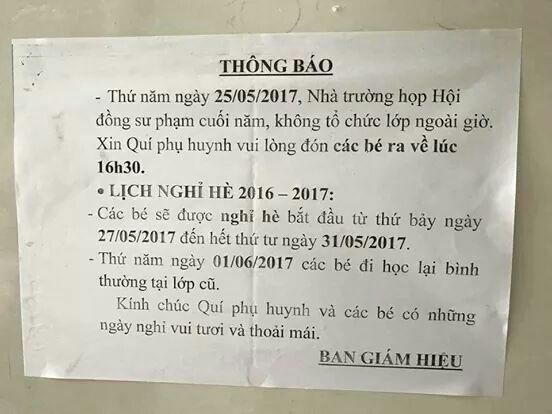 THÔNG BÁO
- Thứ năm ngày 25/05/2017, Nhà trường họp Hội
đồng sư phạm cuối năm, không tổ chức lớp ngoài giờ.
Xin Quí phụ huynh vui lòng đón các bé ra về lúc
16h30.
• LỊCH NGHỈ HÈ 2016 – 2017:
- Các bé sẽ được nghỉ hè bắt đầu từ thứ bảy ngày
27/05/2017 đến hết thứ tư ngày 31/05/2017.
- Thứ năm ngày 01/06/2017 các bé đi học lại bình
thường tại lớp cũ.
Kính chúc Quí phụ huynh và các bé có những
ngày nghỉ vui tươi và thoải mái.
BAN GIÁM HIỆU